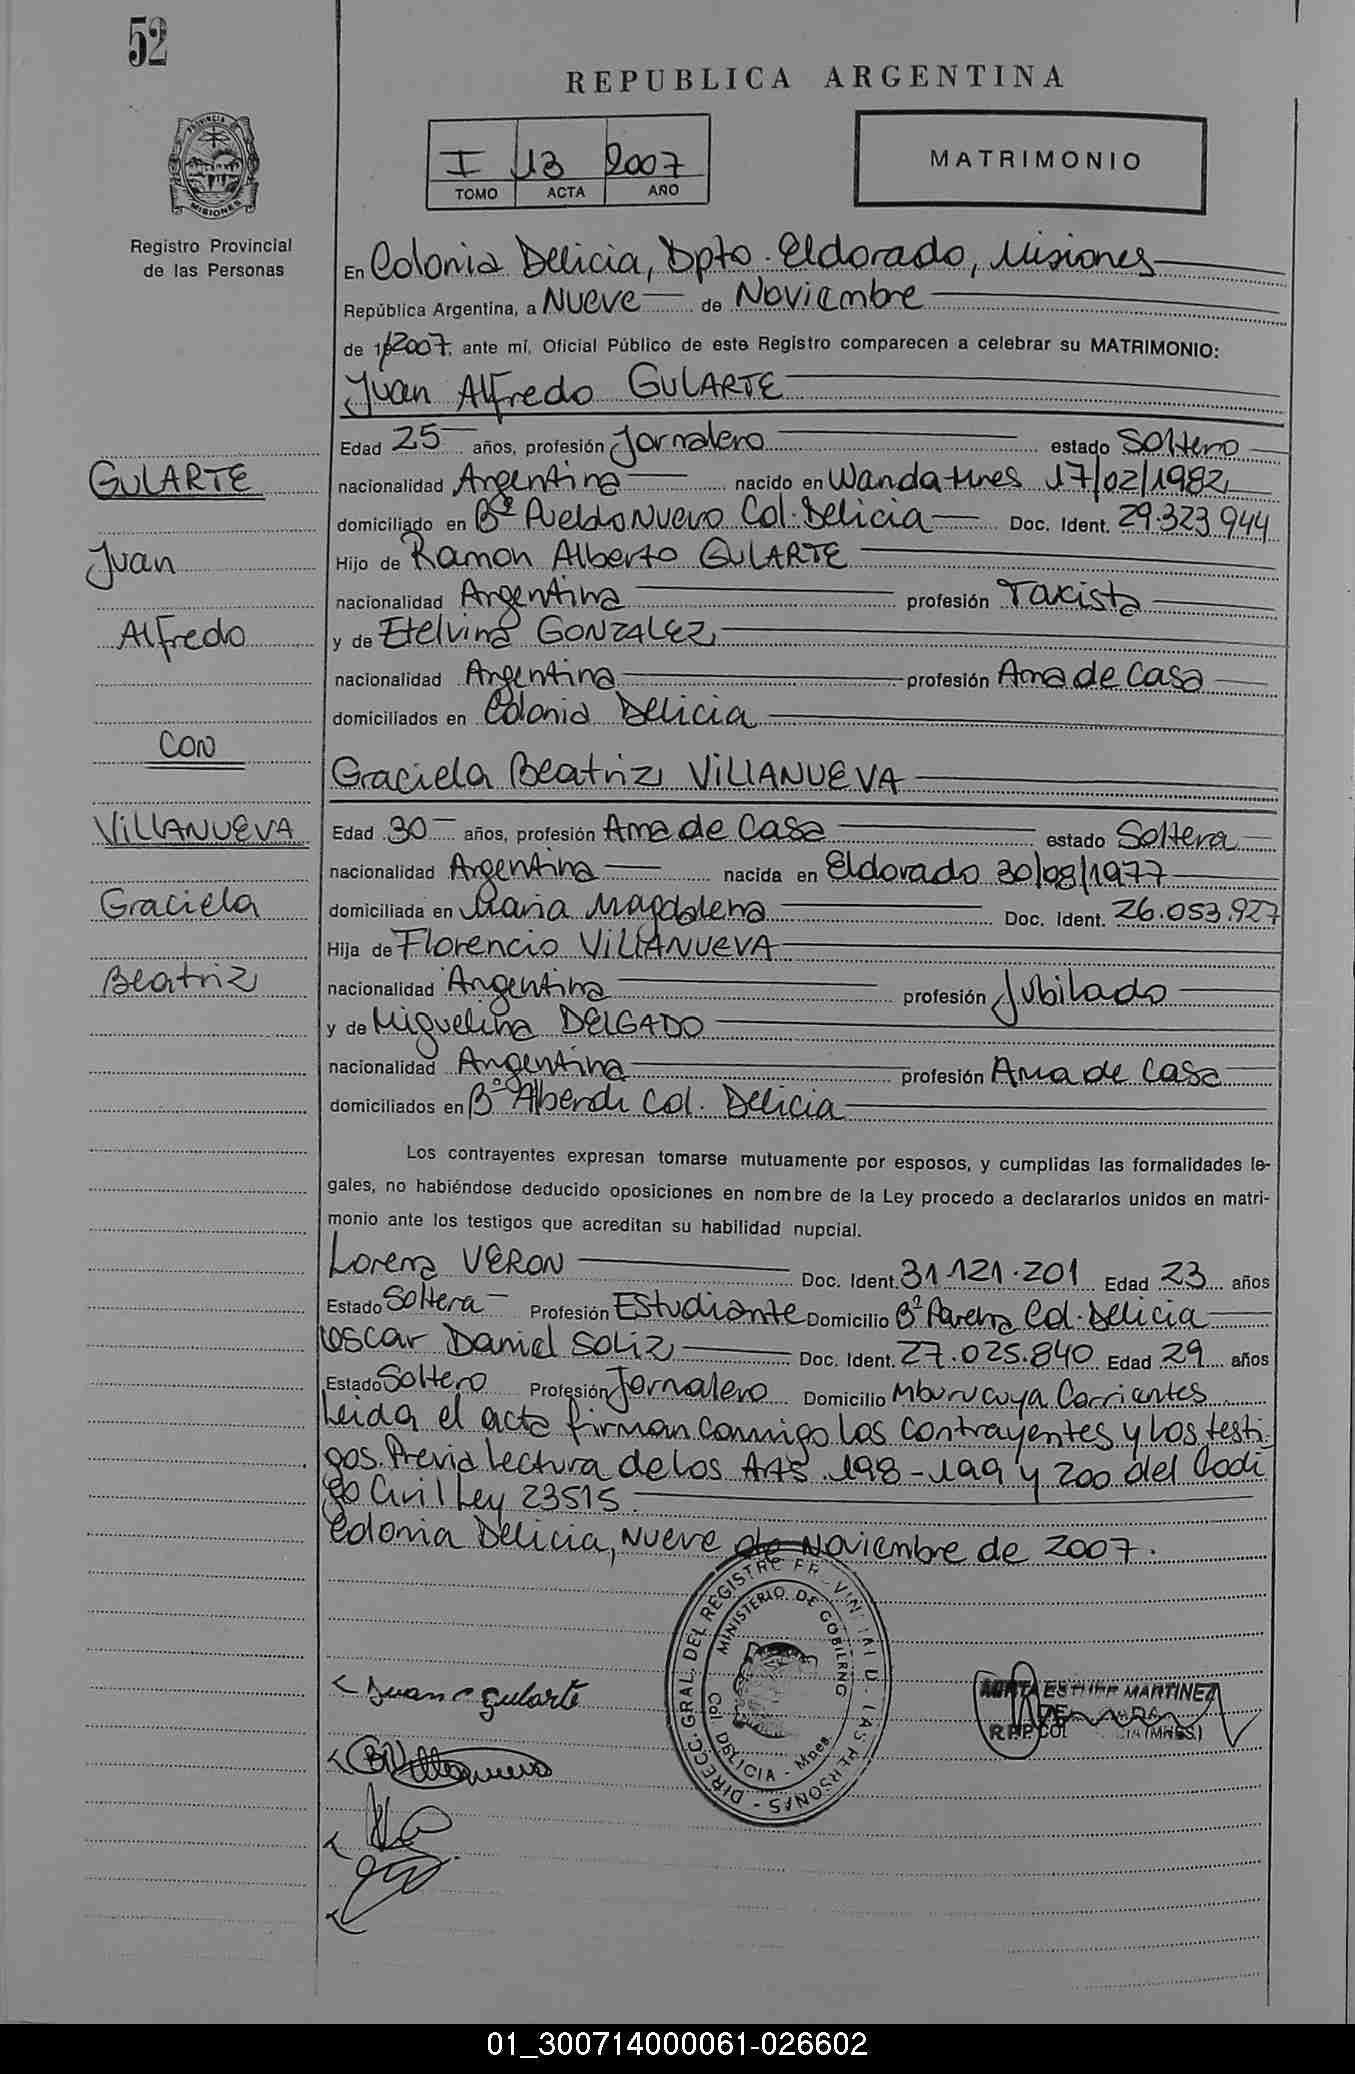 52
REPUBLICA ARGENTINA
I 13 2007
TOMO ACTA AÑO
MATRIMONIO
PROVINCIA
MISIONES
Registro Provincial
de las Personas
En Colonia Delicia, Dpto. Eldorado, Misiones
República Argentina, a Nueve de Noviembre
de 2007, ante mí, Oficial Público de este Registro comparecen a celebrar su MATRIMONIO:
Juan Alfredo GULARTE
Edad 25 años, profesión Jornalero estado Soltero
GULARTE
nacionalidad Argentina nacido en Wanda Mnes 17/02/1982
domiciliado en Bº Pueblo Nuevo Col. Delicia Doc. Ident. 29.323.944
Juan
Hijo de Ramon Alberto GULARTE
nacionalidad Argentina profesión Taxista
Alfredo
y de Etelvina GONZALEZ
nacionalidad Argentina profesión Ama de Casa
domiciliados en Colonia Delicia
CON
Graciela Beatriz VILLANUEVA
VILLANUEVA
Edad 30 años, profesión Ama de Casa estado Soltera
nacionalidad Argentina nacida en Eldorado 30/08/1977
Graciela
domiciliada en Maria Magdalena Doc. Ident. 26.053.927
Hija de Florencio VILLANUEVA
Beatriz
nacionalidad Argentina profesión Jubilado
y de Miguelina DELGADO
nacionalidad Argentina profesión Ama de Casa
domiciliados en Bº Alberdi Col. Delicia
Los contrayentes expresan tomarse mutuamente por esposos, y cumplidas las formalidades le-
gales, no habiéndose deducido oposiciones en nombre de la Ley procedo a declararlos unidos en matri-
monio ante los testigos que acreditan su habilidad nupcial.
Lorena VERON Doc. Ident. 31.121.201 Edad 23 años
Estado Soltera Profesión Estudiante Domicilio Bº Col. Delicia
Oscar Daniel SOLIZ Doc. Ident. 27.025.840 Edad 29 años
Estado Soltero Profesión Jornalero Domicilio Mburucuya Corrientes
Leida el acta firman conmigo los contrayentes y los testi-
gos. Previa lectura de los Arts. 198-199 y 200 del Codi
go Civil Ley 23515.
Colonia Delicia, Nueve de Noviembre de 2007.
DIRECC. GRAL. DEL REGISTRO PROVINCIAL DE LAS PERSONAS
MINISTERIO DE GOBIERNO
Col. DELICIA - Mnes.
Juan a gularte
ESTHER MARTINEZ
R.P.P. COL (MNES.)
01_300714000061-026602